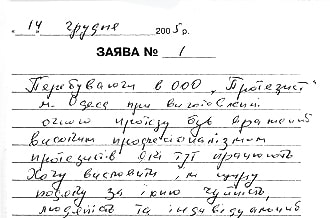 „ 14 " грудня 2005 р.
ЗАЯВА № 1
Перебуваючи в ООО „Протезист"
м. Одеса при виготовленні
очного протезу був вражений
високим професіоналізмом
протезистів які тут працюють
Хочу висловити їм щиру
подяку за їхню чуйність,
людяність та індивідуальний